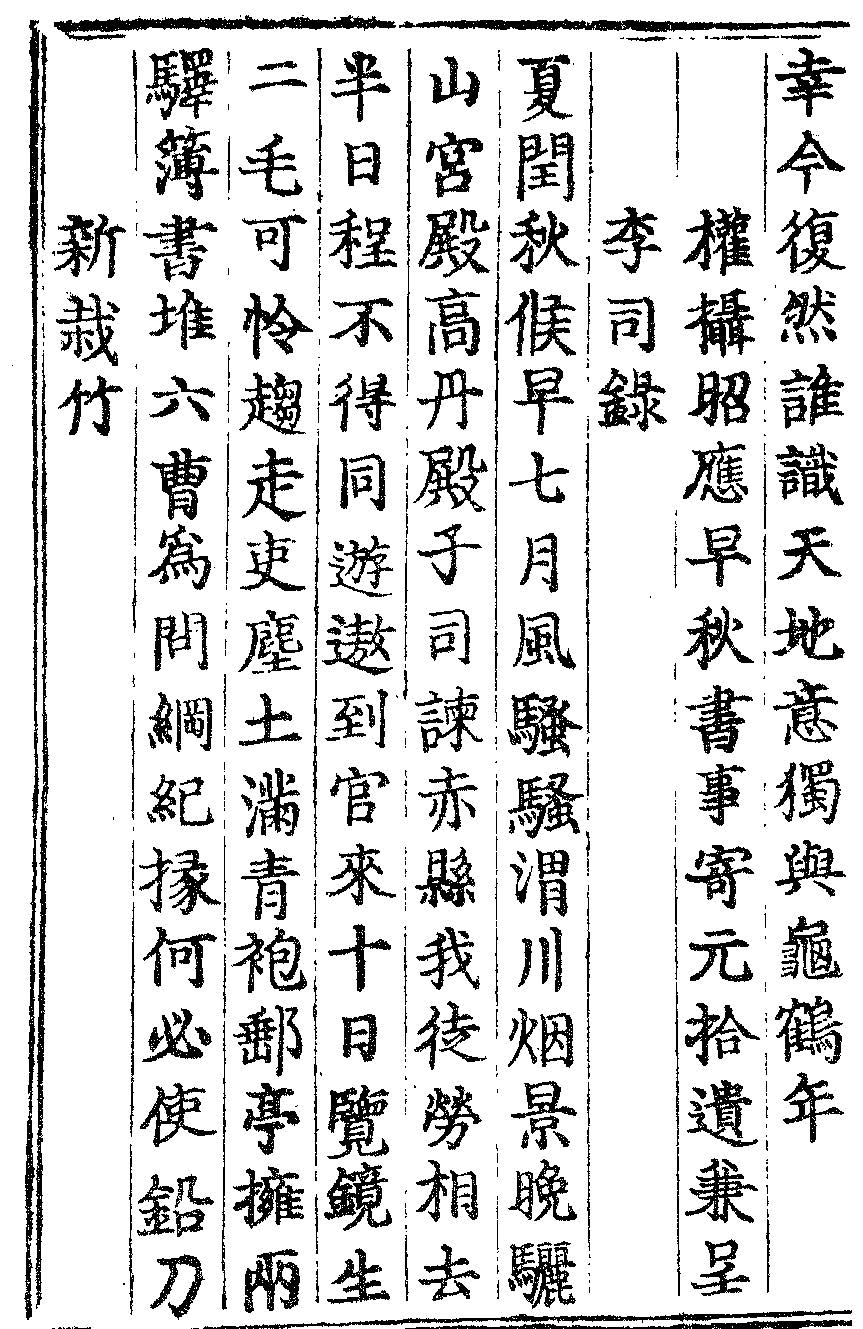 幸今復然誰識天地意獨與龜鶴年
權攝昭應早秋書事寄元拾遺兼呈
李司錄
夏閏秋候早七月風騷騷渭川烟景晚驪
山宮殿高丹殿子司諫赤縣我徒勞相去
半日程不得同遊遨到官來十日覽鏡生
二毛可怜趨走吏塵土滿青袍郵亭擁兩
驛簿書堆六曹爲問綱紀掾何必使鉛刀
新栽竹